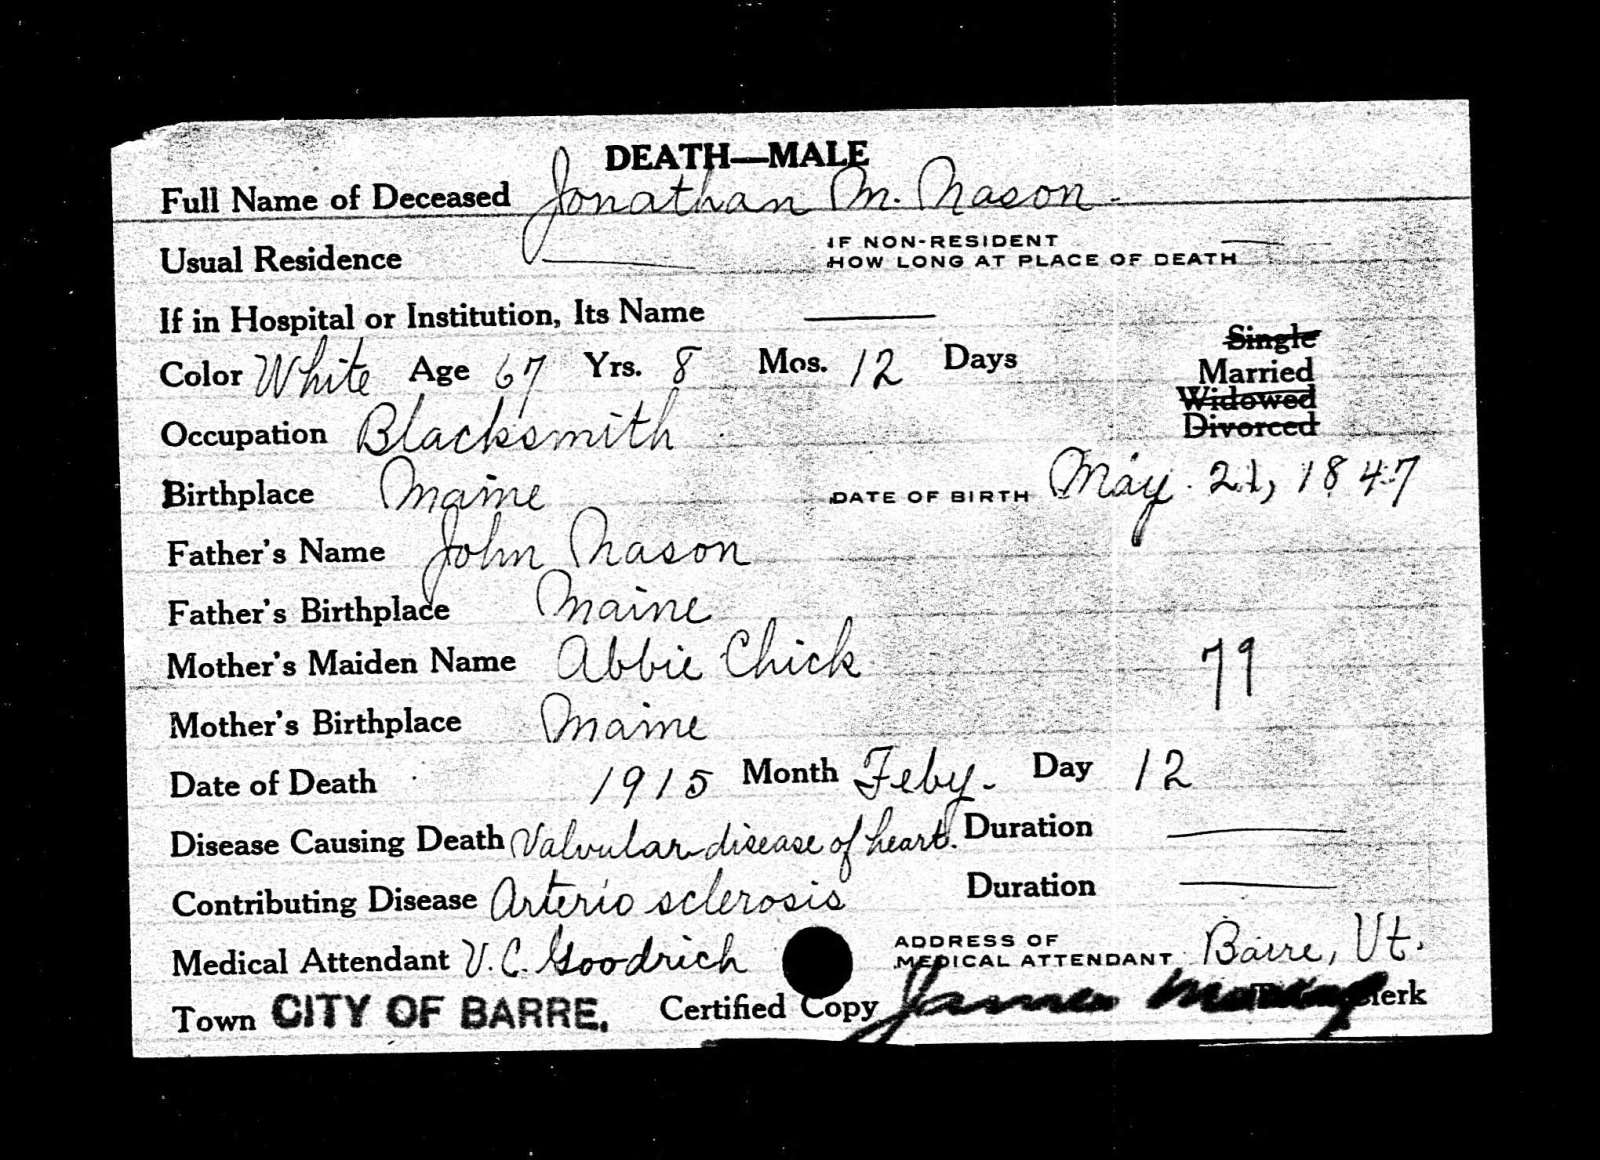 DEATH—MALE
Full Name of Deceased Jonathan M. Nason
Usual Residence IF NON-RESIDENT
HOW LONG AT PLACE OF DEATH
If in Hospital or Institution, Its Name
Single
Color White Age 67 Yrs. 8 Mos. 12 Days
Married
Widowed
Divorced
Occupation Blacksmith
Birthplace Maine DATE OF BIRTH May 21, 1847
Father's Name John Nason
Father's Birthplace Maine
Mother's Maiden Name Abbie Chick
79
Mother's Birthplace Maine
Date of Death 1915 Month Feby. Day 12
Disease Causing Death Valvular disease of heart. Duration
Contributing Disease Arterio sclerosis Duration
Medical Attendant V. C. Goodrich ADDRESS OF
MEDICAL ATTENDANT Barre, Vt.
Town CITY OF BARRE. Certified Copy James Clerk